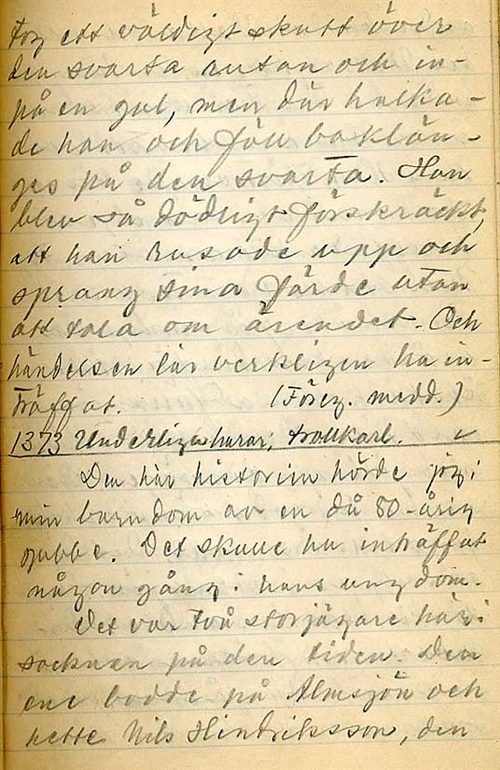 tog ett väldigt skutt över
den svarta rutan och in-
på en gul, men där halka-
de han och föll baklän-
ges på den svarta. Han
blev så dödligt förskräckt,
att han rusade upp och
sprang sina färde utan
att tala om ärendet. Och
händelsen lär verkligen ha in-
träffat. (Föreg. medd.)
1373 Underliga harar, trollkarl.
Den här historien hörde jag i
min barndom av en då 80-årig
gubbe. Det skulle ha inträffat
någon gång i hans ungdom.
Det var två storjägare här i
socknen på den tiden. Den
ene bodde på Almsjön och
hette Nils Hindriksson, den